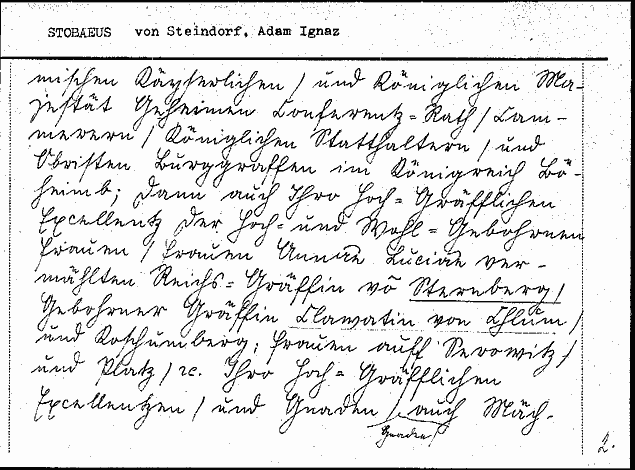 STOBAEUS von Steindorf, Adam Ignaz
mischen Käyserlichen / und Königlichen Ma-
jestät Geheimen Conferentz=Rath / Cam-
merern / Königlichen Statthaltern / und
Obristen Burggraffen im Königreich Bö-
heimb; Dann auch Ihro Hoch=Gräfflichen
Excellentz Der Hoch= und Wohl=Gebohrnen
Frauen / Frauen Annae Luciae ver-
mählten Reichs=Gräffin vō Sternberg /
Gebohrner Gräffin Slawatin von Chlum /
und Koschumberg; Frauen auff Serowitz /
und Platz / rc. Ihro Hoch=Gräfflichen
Excellentzen / und Gnaden / auch Mäch-
Gnaden /
2.